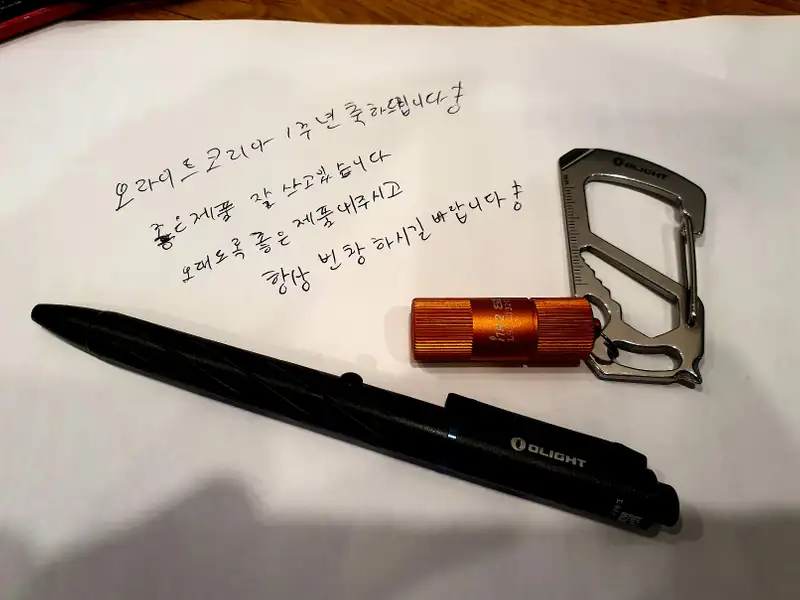 오라이트코리아 1주년 축하드립니다!
좋은제품 잘 쓰고있습니다
오래도록 좋은 제품내주시고
항상 번창 하시길 바랍니다!
OLIGHT
OLIGHT